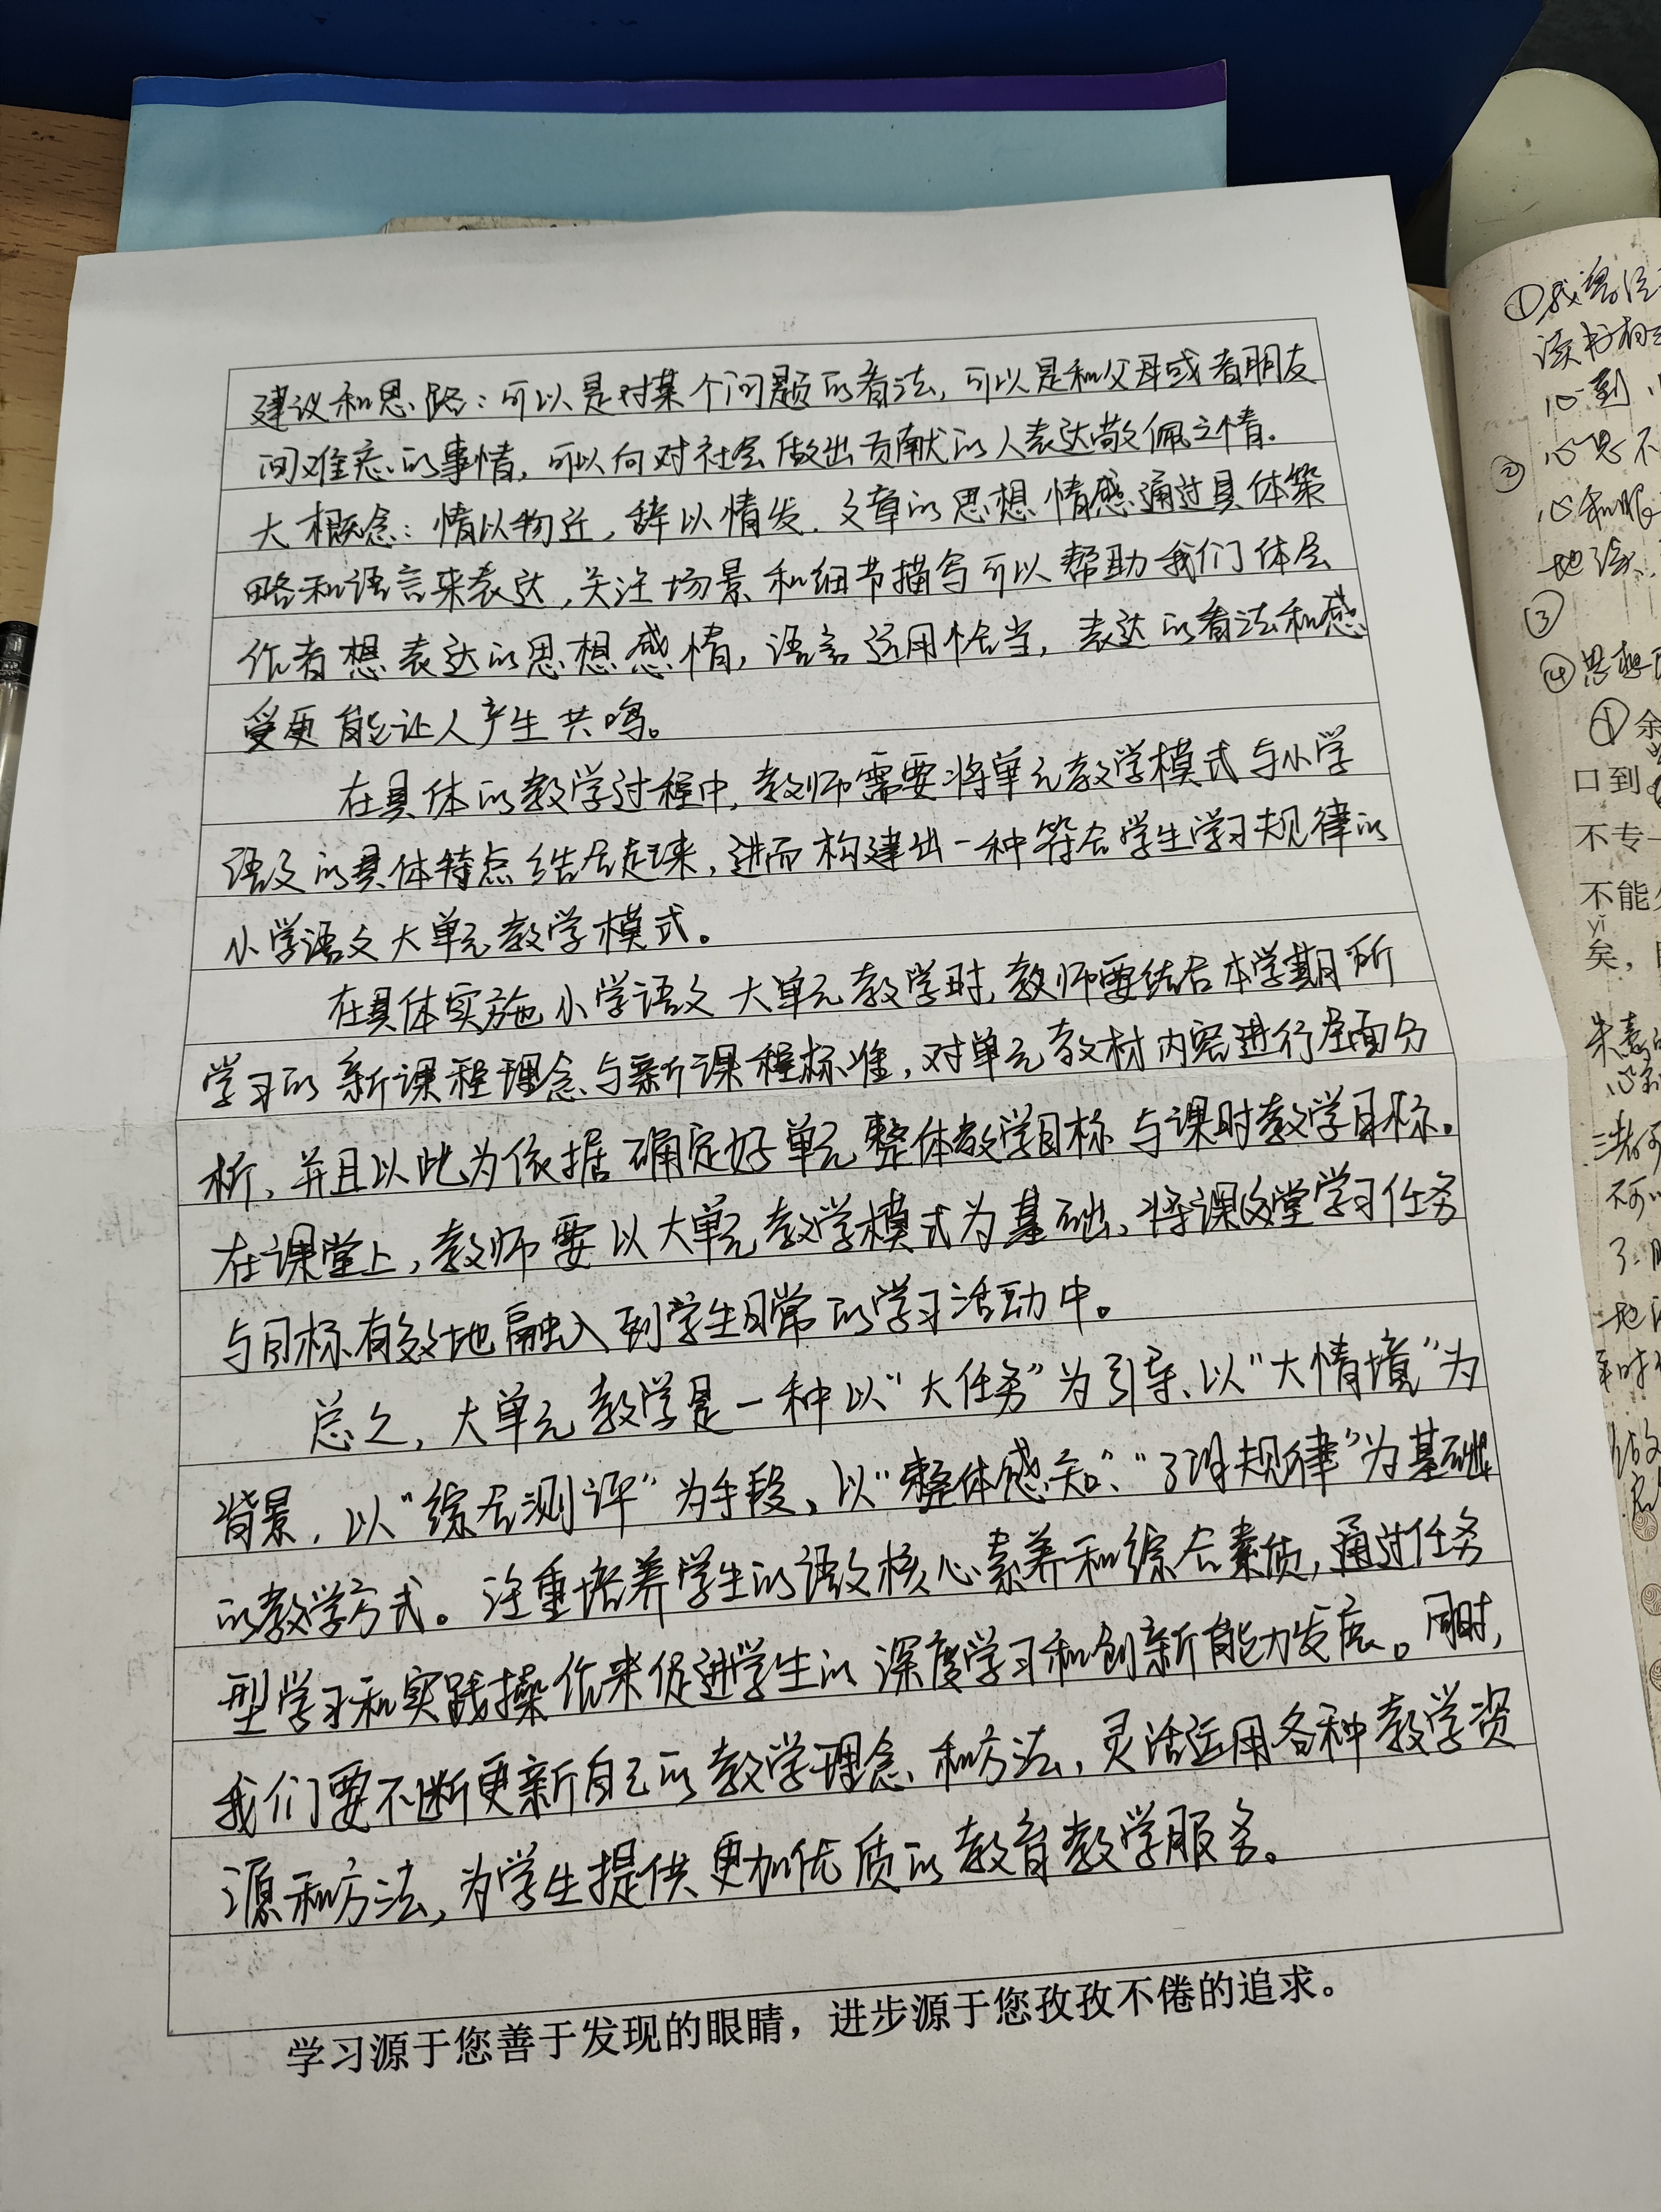 建议和思路：可以是对某个问题的看法，可以是和父母或者朋友
间难忘的事情，可以向对社会做出贡献的人表达敬佩之情。
大概念：情以物迁，辞以情发。文章的思想情感通过具体策
略和语言来表达，关注场景和细节描写可以帮助我们体会
作者想表达的思想感情，语言运用恰当，表达的看法和感
受更能让人产生共鸣。
在具体的教学过程中，教师需要将单元教学模式与小学
语文的具体特点结合起来，进而构建出一种符合学生学习规律的
小学语文大单元教学模式。
在具体实施小学语文大单元教学时，教师要结合本学期所
学习的新课程理念与新课程标准，对单元教材内容进行全面分
析，并且以此为依据确定好单元整体教学目标与课时教学目标。
在课堂上，教师要以大单元教学模式为基础，将课堂学习任务
与目标有效地融入到学生日常的学习活动中。
总之，大单元教学是一种以“大任务”为引导、以“大情境”为
背景，以“综合测评”为手段，以“整体感知”、“了理规律”为基础
的教学方式。注重培养学生的语文核心素养和综合素质，通过任务
型学习和实践操作来促进学生的深度学习和创新能力发展。同时，
我们要不断更新自己的教学理念和方法，灵活运用各种教学资
源和方法，为学生提供更加优质的教育教学服务。
学习源于您善于发现的眼睛，进步源于您孜孜不倦的追求。
①我
读书有
心到
② 心思不
心和眼
地读
③
④思想
① 余
口到
不专一
不能
yǐ
矣，